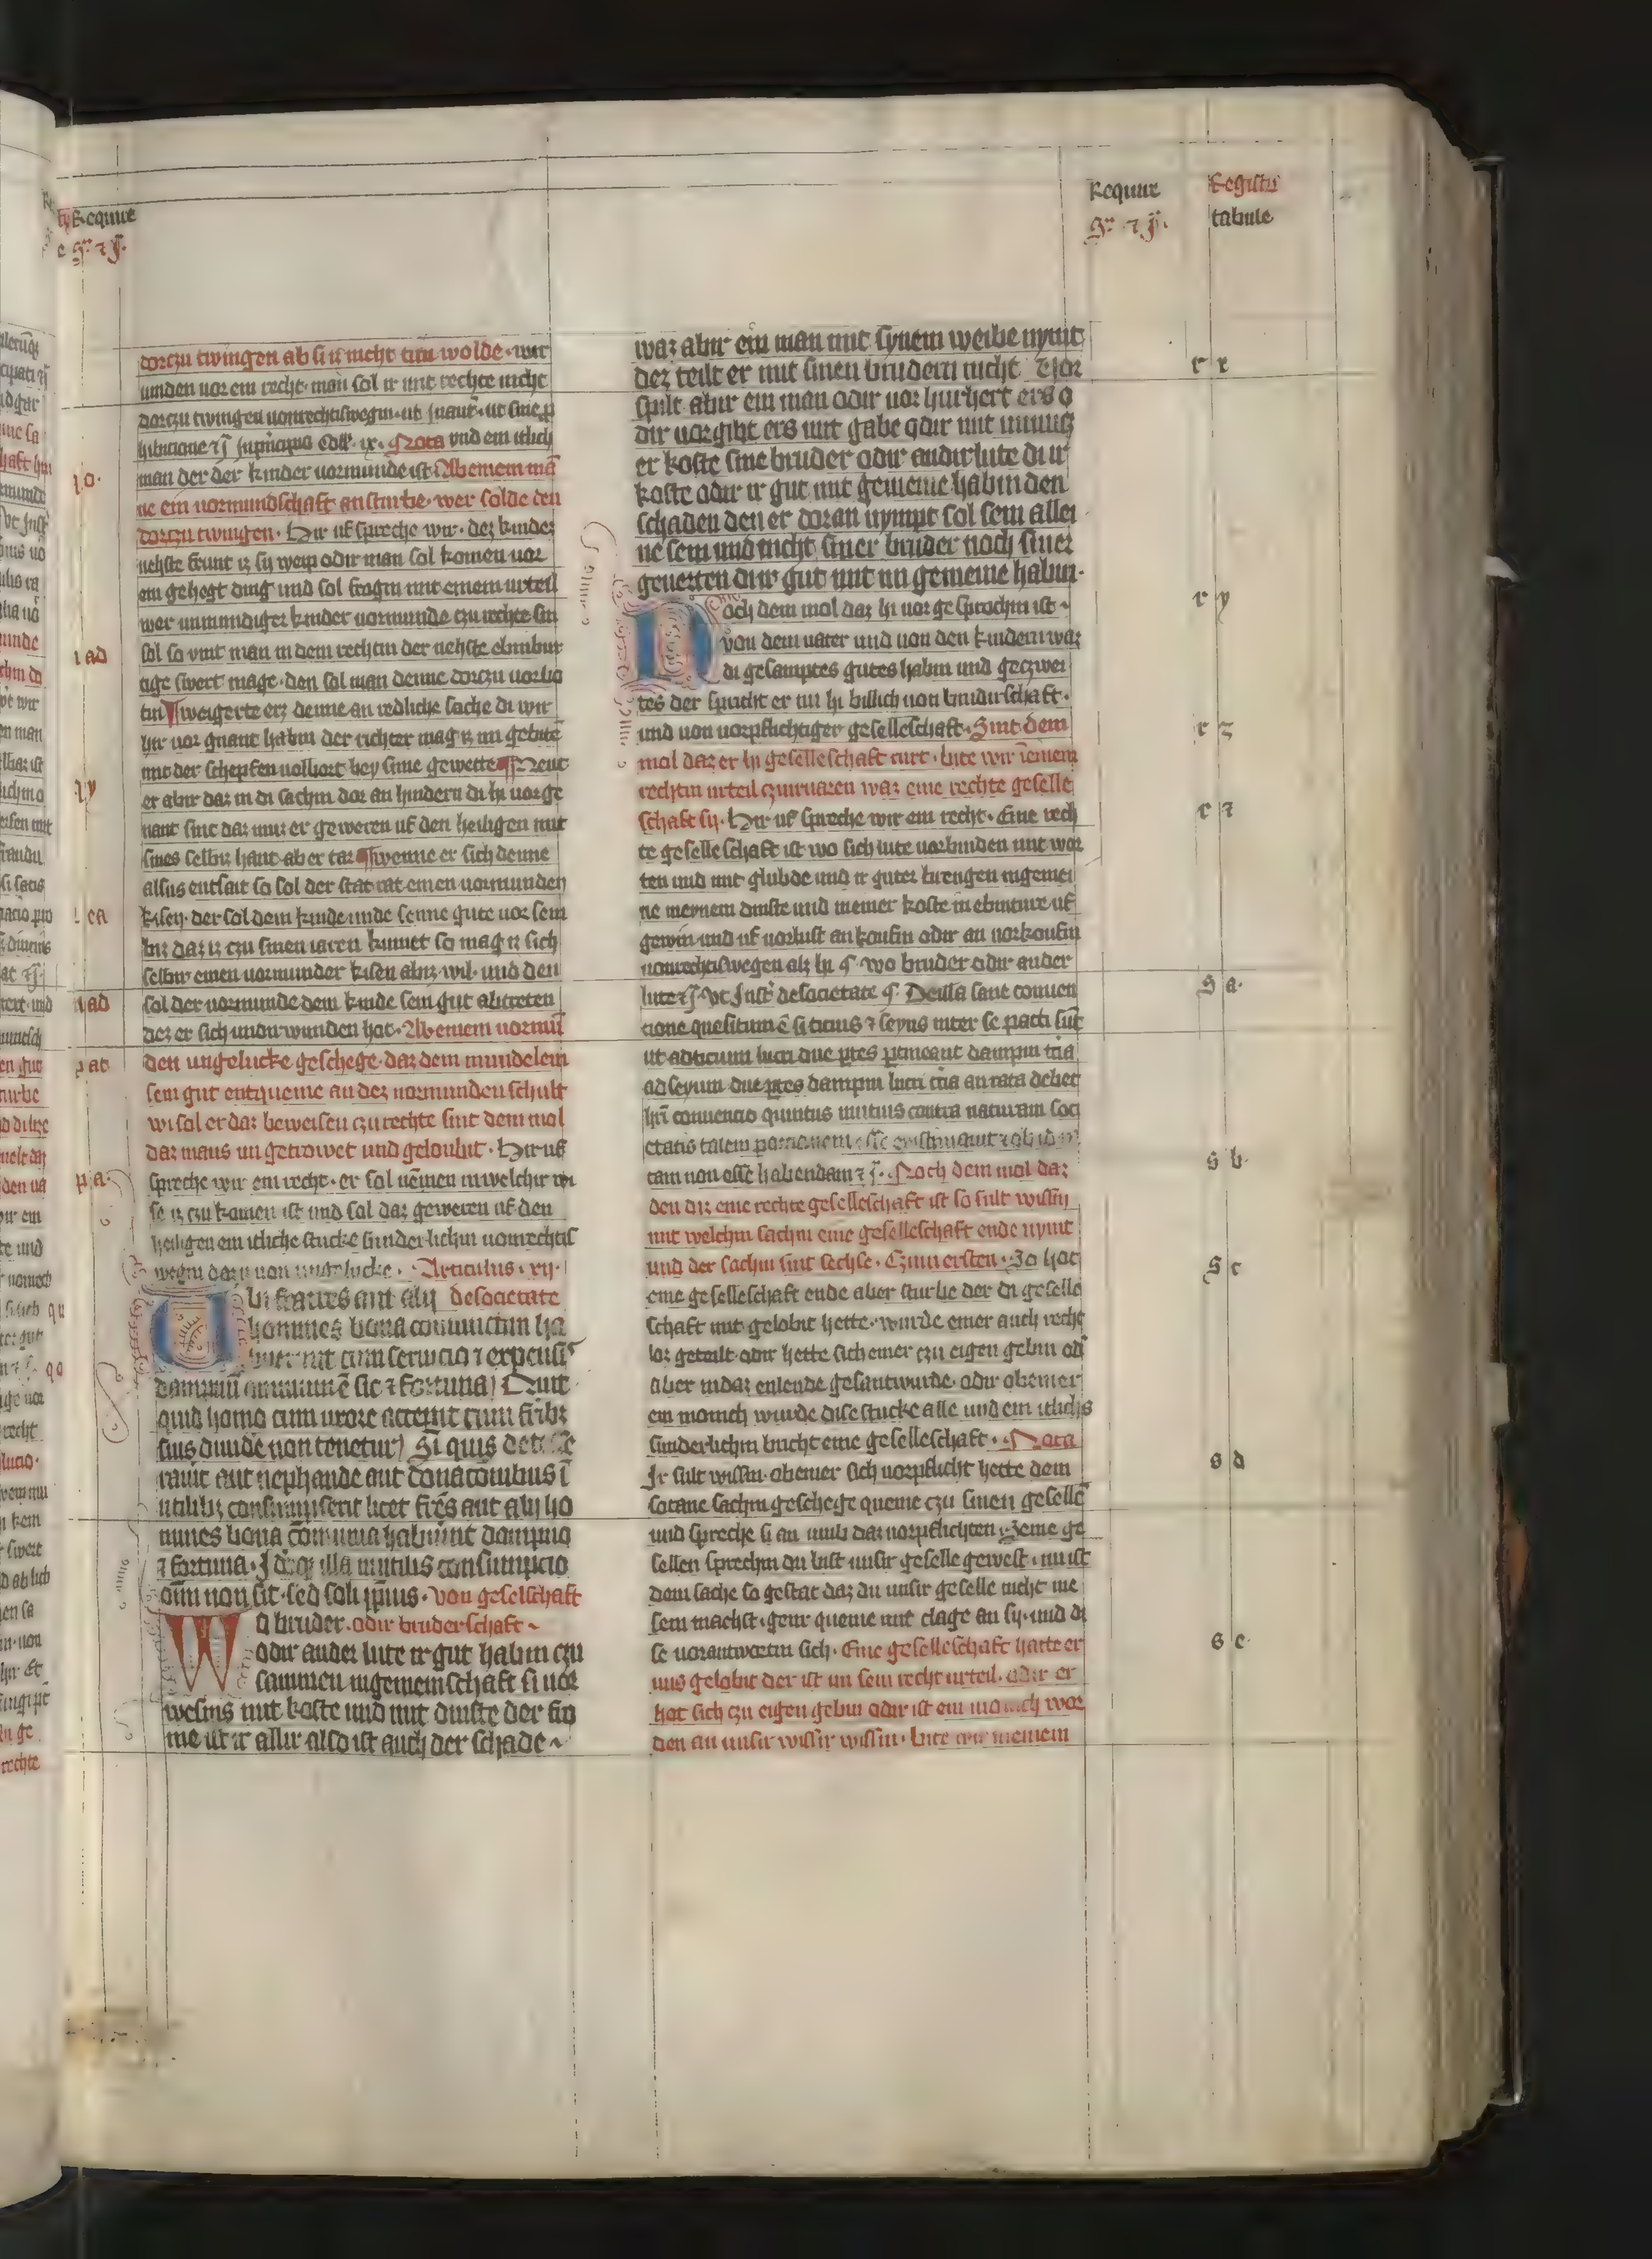 Require
Registrum
tabule
dorczu twingen ab si is nicht tun wolde. wir
uinden uor ein recht. man sol ir mit rechte nicht
man der der kinder uormunde ist. Ab einem mā
ne ein uormundschaft an sturbe. wer solde den
dorczu twingen. Hir uf spreche wir. dez kindez
nehste frunt iz sy weip odir man sol komen uor
ein gehegt ding und sol frogin mit einem urteil
wer unmundiger kinder uormunde czu rechte sin
sol so vint man in dem rechtin der nehste ebinbur
tige swert mage. den sol man denne dorczu uorbo
tin weigerte erz denne an redliche sache di wir
hir uor gnant habin der richter mag iz im gebitē
mit der schepfen uolbort bey sime gewette Nent
er abir daz in di sachin dor an hindern di hi uor ge
nant sint daz muz er geweren uf den heiligen mit
sines selbiz hant ab er tar wenne er sich denne
alsus entsait so sol der stat rat einen uormunden
kisen. der sol dem kinde unde senne gute uor sein
biz daz iz czu sinen iaren kumet so mag iz sich
selbir einen uormunder kisen abiz wil. und den
sol der uormunde dem kinde sein gut abtreten
dez er sich undir wunden hot. Ab einem uormū
den ungelucke geschege. daz dem mundelein
sein gut entqueme an dez uormunden schult
wi sol er daz beweisen czu rechte sint dem mol
daz mans im getrowet und geloubit. Hir uf
spreche wir ein recht. er sol nēmen in welchir wi
se iz czu komen ist und sol daz geweren uf den
heiligen ein itliche stucke sunderlichin uonrechtis
wegin Articulus. xij.
Ubi fratres aut alij de societate
homines bona communitim ha
buerint cum seruicio et expensis
dampnum omnium ē sic et fortuna) Quit
quid homo cum uxore acceperit cum fr̄ibz
suis diuide non tenetur) Si quis
rauit aut nephande aut donationibus ī
utilibz consumpserit licet fr̄es aut alij ho
mines bona cōmunia habuint dampno
et fortuna. Idcirco illa inutilis consumpcio
oīm non sit. sed soli ip̄ius. von geselschaft
Wo bruder. odir bruderschaft
odir andir lute ir gut habin czu
sammen in gemeinschaft si uor
welins mit koste und mit dinste der fro
me ist ir allir also ist auch der schade
waz abir ein man mit synem weibe nymt
dez teilt er mit sinen brudern nicht Tjor
spilt abir ein man odir uor hurhert ers o
dir uorgibt ers mit gabe odir mit unnucz
er koste sine bruder odir andir lute di ir
koste odir ir gut mit gemeine habin den
schaden den er doran nympt sol sein allei
ne sein und nicht siner bruder noch siner
geuerten di ir gut mit im gemeine habin.
Noch dem mol daz hi uor gesprochin ist
von dem uater und uon den kindern waz
di gesamptes gutes habin und geczwei
tes der spricht er nu hi billich uon brudirschaft.
und uon uorpflichtiger geselleschaft. Sint dem
mol daz er hi geselleschaft rurt. bite wir ī einem
rechtin urteil czuiruaren waz eine rechte geselle
schaft sy. Hir uf spreche wir ein recht. Eine rech
te geselleschaft ist wo sich lute uorbinden mit wor
ten und mit glubde und ir guter brengen ingemei
ne meynem dinste und meiner koste in ebinture uf
gewin und uf uorlust an koufin odir an uorkoufin
uonrechtiswegen alz hi ¶ wo bruder odir ander
lute etc. Vt Inst̄ de societate ¶ De illa sane conuen
cione quesitum ē si ticius et seyus inter se pacti sūt
ut ad ticium lucri due ptes ptineant dampni tcia
ad seyum due ptes dampni lucri tcia an rata debet
hr̄i conuencio quintus mutius contra naturam soci
etatis talem
tam non esse habendam etc. Noch dem mol daz
den diz eine rechte geselleschaft ist so sult wissin
mit welchin sachin eine geselleschaft ende nymt
und der sachin sint sechse. Czum ersten. Jo hot
eine geselleschaft ende aber sturbe der di geselle
schaft mit gelobit hette. wurde einer auch recht
loz geteilt odir hette sich einer czu eigen gebin od
aber in daz enlende gesant wurde. odir ab einer
ein monich wurde dise stucke alle und ein itlichs
sunderlichin bricht eine geselleschaft. Nota
Ir sult wissin. ab einer sich uorpflicht hette dem
sotane sachin geschege queme czu sinen geselle
und spreche si an umb daz uorpflichten. Jeme ge
sellen sprechin du bist unsir geselle gewest. nu ist
dein sache so gestat daz du unsir geselle nicht me
sein machst. genir queme mit clage an sy. und di
se uorantwortin sich. Eine geselleschaft hatte er
uns gelobit der ist im sein recht urteil. odir er
hot sich czu eigen gebin odir ist ein monich wor
den an unsir wissir wissin. bite wir in einem
r x
r y
r z
s a.
s b
s c
s d
s e